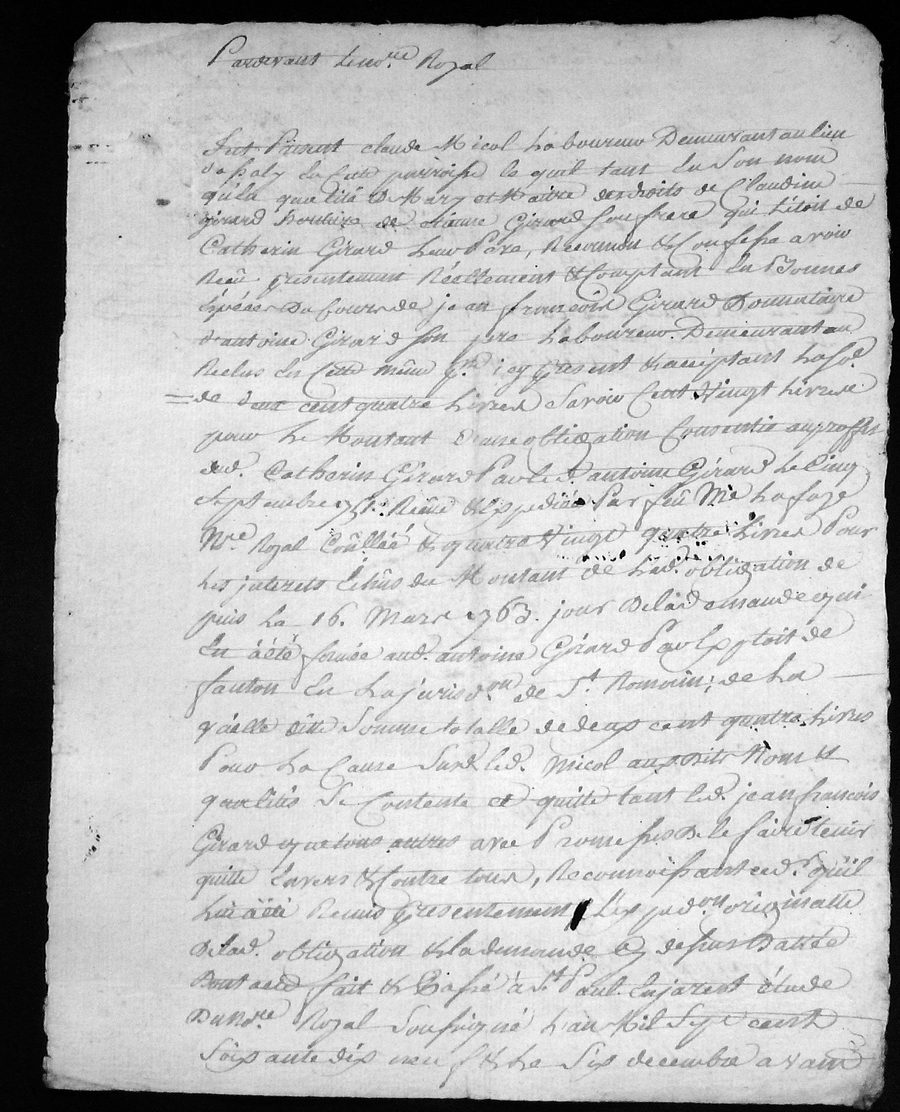 Pardevant le no.re Royal
fut Présent claude Micol Laboureur Demeurant au lieu
paroisse le quel tant en Son nom
qu'en qualité De Mary et Maitre des droits de Claudine
Girard heritiere de Girard Son frere qui l'étoit de
Catherin Girard leur Pere, Reconnu & Confessé avoir
Reçu presentement Réellement & Comptant En Bonnes
Espéces Du Cours de jean françois Girard Donnataire
d'antoine Girard Son pere Laboureur Demeurant au
Reclus En Cette même p.sse icy présent & acceptant La So.e
de deux cent quatre Livres Savoir Cent Vingt Livres
pour Le Montant d'une obligation Consentie au proffit
dud. Catherin Girard Par led. antoine Gérard Le Cinq
Septembre 1751. Reçüe & Expediée Par feû Me La faye
N.re Royal Coñllée & quatre Vingt quatre Livres Pour
Les interets Echûs du Montant de Lad. obligation de
puis Le 16. Mars 1763. jour De lad. demande qui
En a été formée aud. antoine Gérard Par Exploit de
fanton En La jurisd.on de S.t Romain; de La
quelle ditte Somme totalle de deux cent quatre Livres
Pour La Cause Sud. led. Micol aux dits Noms &
qualités Se Contente et quitte tant led. jean françois
Girard que tous autres avec Promesses De le faire tenir
quitte Envers & Contre tous, Reconnoissant led. qu'il
Lui a été Remis Presentement L'Exped.on originalle
De lad. obligation & la demande cy dessus Dattée
Dont acte fait & Passé à S.t Paul En jarest étude
Du No.re Royal Soussigné L'an Mil Sept cent
Soixante dix neuf & Le Six decembre avant